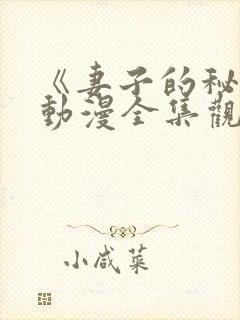 《妻子的秘
動漫全集觀
小咸菜